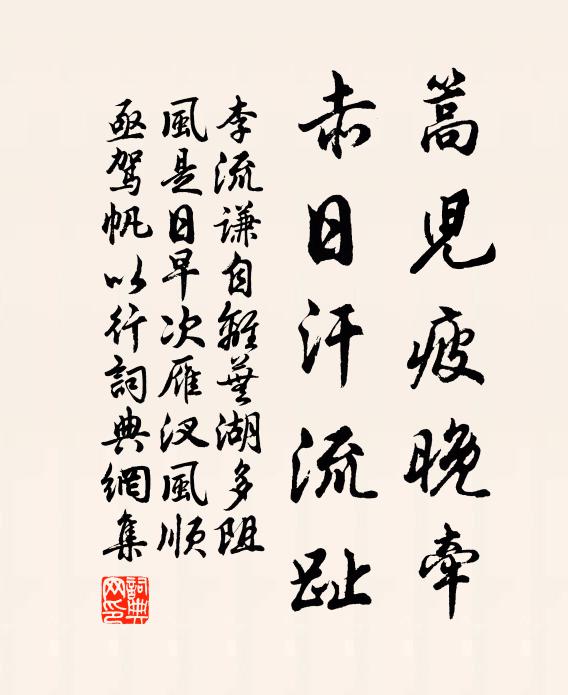 蒿児疲晚牽
赤日汗流趾
李流谦自離蕪湖多阻
風是日早次雁汊風順
亟駕帆以行詞典網集
詞典网印